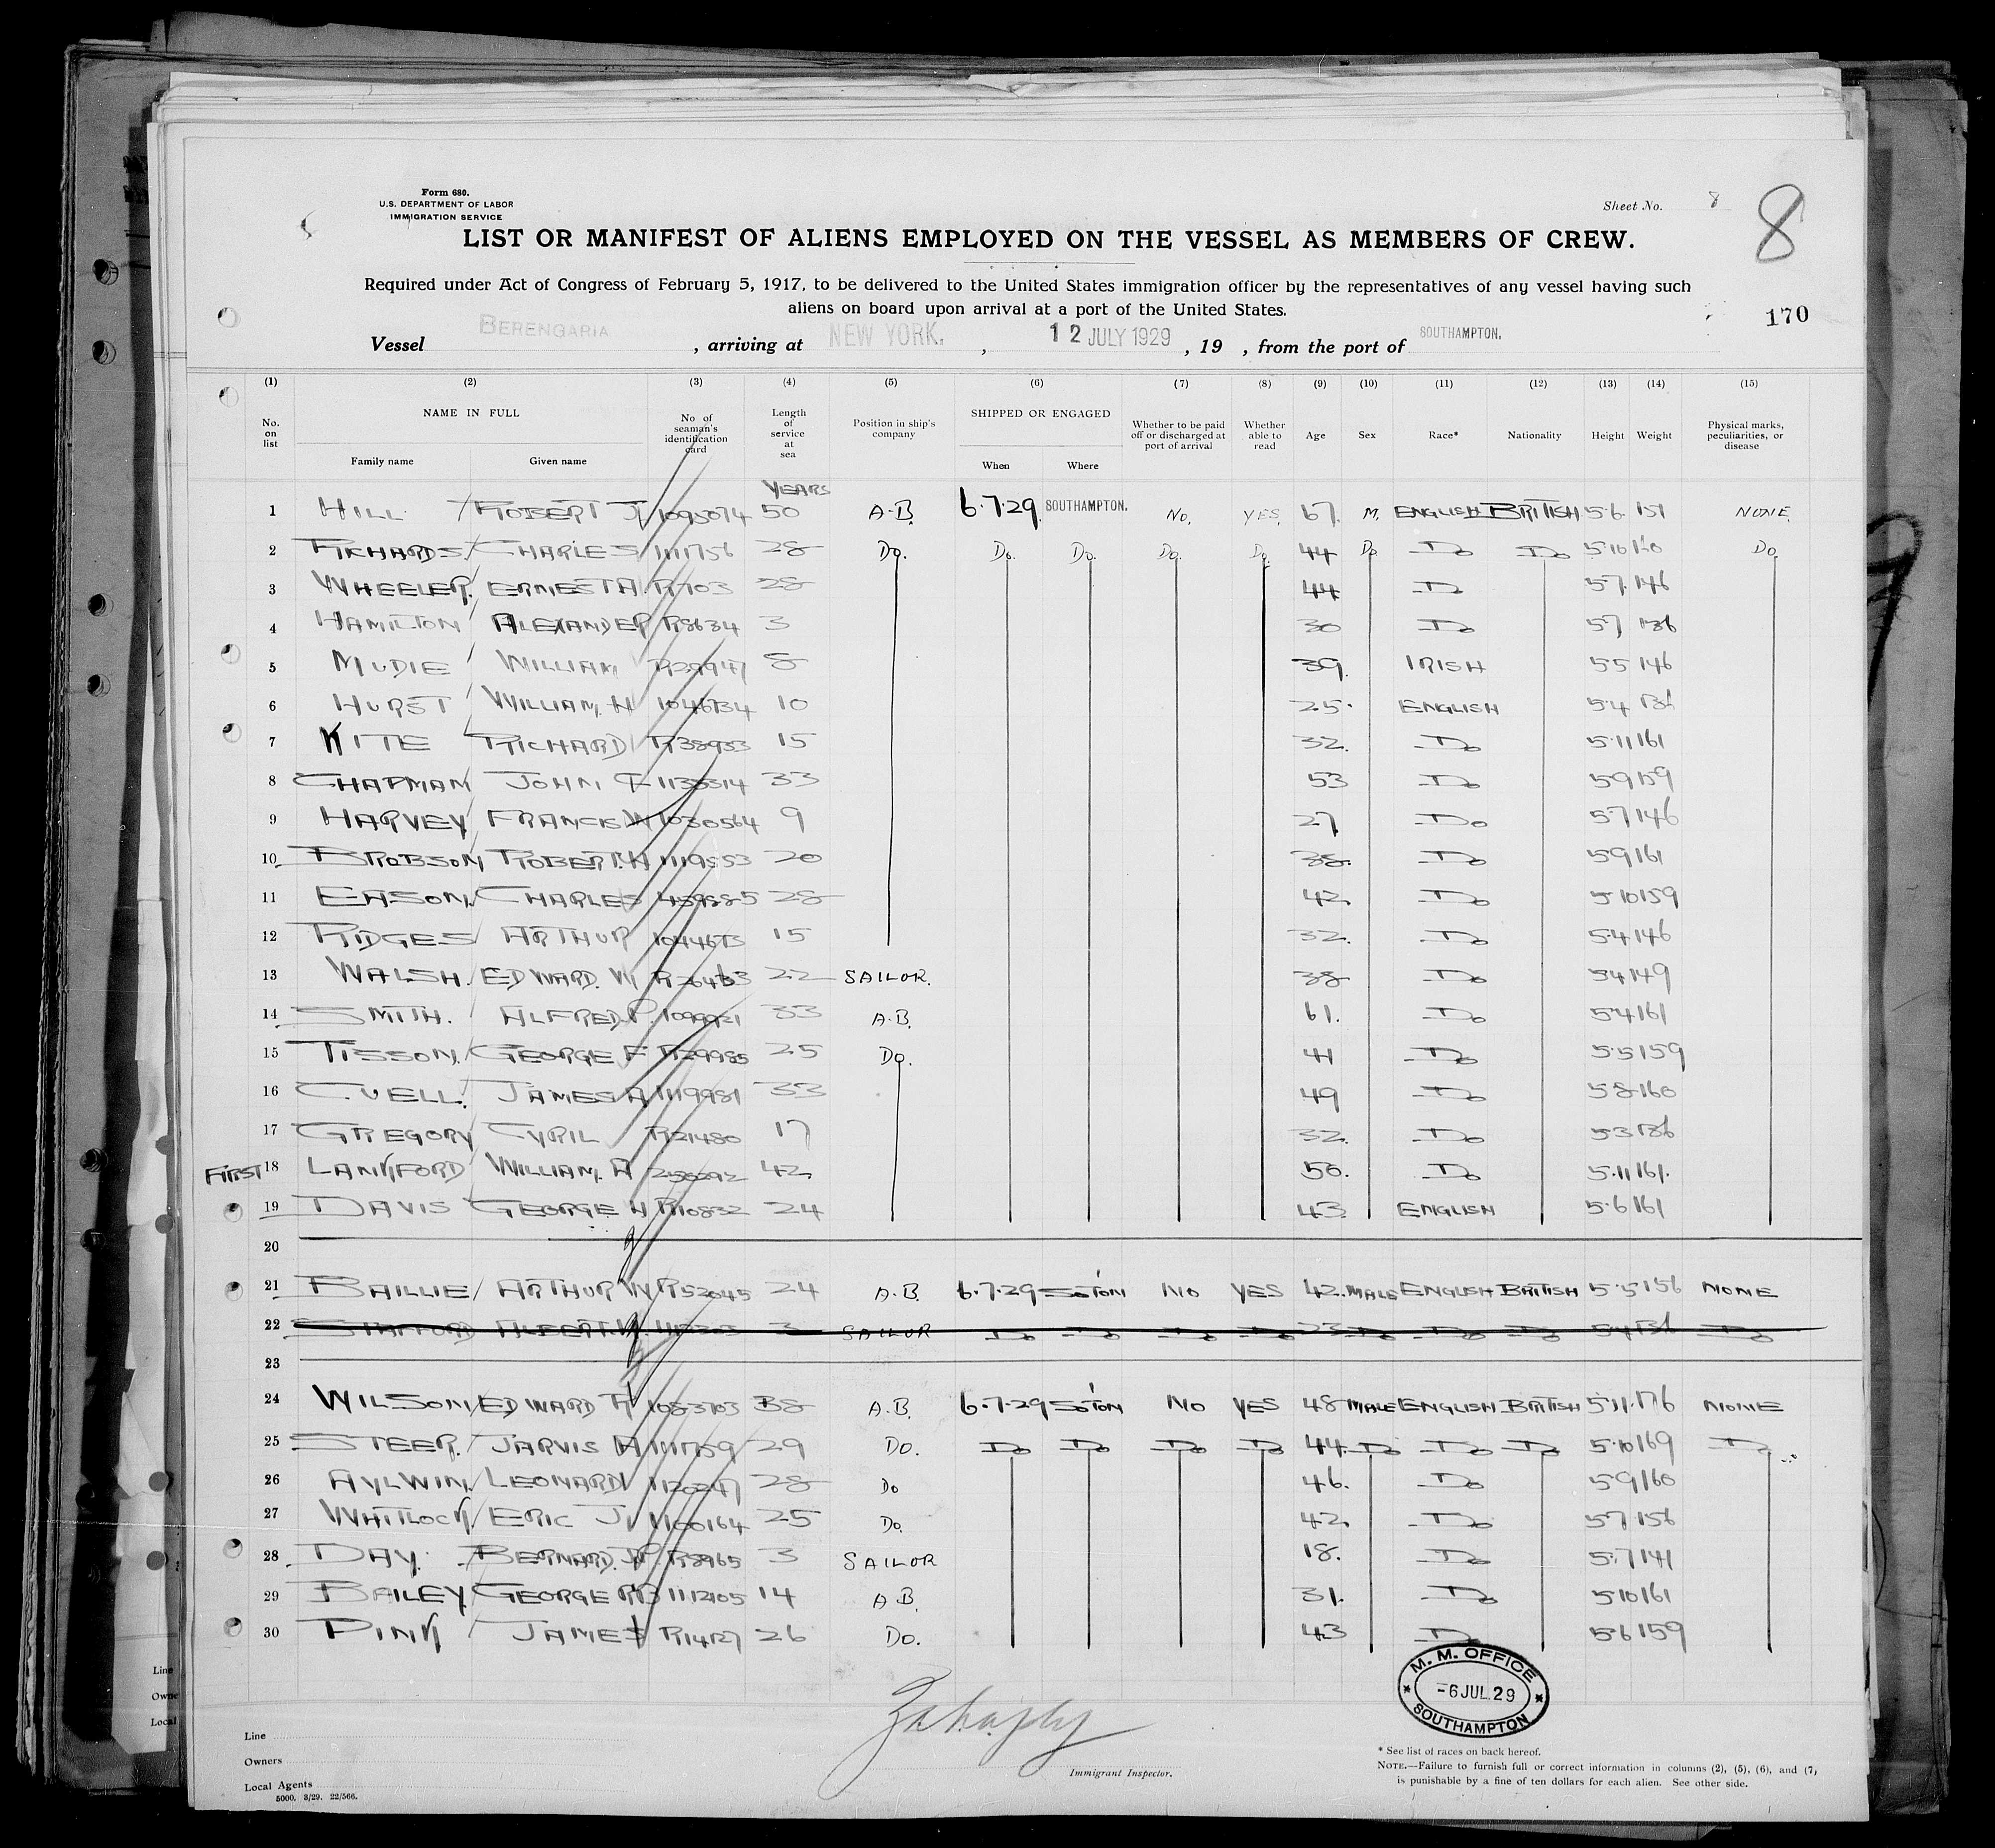 Form 680.
U.S. DEPARTMENT OF LABOR
IMMIGRATION SERVICE
Sheet No. 8
8
LIST OR MANIFEST OF ALIENS EMPLOYED ON THE VESSEL AS MEMBERS OF CREW.
Required under Act of Congress of February 5, 1917, to be delivered to the United States immigration officer by the representatives of any vessel having such
aliens on board upon arrival at a port of the United States.
170
Vessel BERENGARIA, arriving at NEW YORK., 12 JULY 1929, 19 , from the port of SOUTHAMPTON.
(1) (2) (3) (4) (5) (6) (7) (8) (9) (10) (11) (12) (13) (14) (15)
No. on list NAME IN FULL Family name Given name No. of seaman's identification card Length of service at sea Position in ship's company SHIPPED OR ENGAGED When Where Whether to be paid off or discharged at port of arrival Whether able to read Age Sex Race* Nationality Height Weight Physical marks, peculiarities, or disease
YEARS
1 HILL ROBERT J 1095074 50 A.B. 6.7.29. SOUTHAMPTON. NO. YES. 67. M. ENGLISH BRITISH 5.6. 151 NONE.
2 RICHARDS CHARLES 1111756 28 DO. DO. DO. DO. DO. 44 DO DO DO 5.10 DO.
3 WHEELER. ERNEST A. R703 28 44 DO 5.7. 146
4 HAMILTON ALEXANDER R8634 3 30 DO 5.7 136
5 MUDIE WILLIAM 8 39. IRISH 5.5 146
6 HURST WILLIAM. H 1046734 10 25. ENGLISH 5.4 136
7 KITE RICHARD R38933 15 32. DO 5.11 161
8 CHAPMAN JOHN 1135314 33 53 DO 5.9 159
9 HARVEY FRANCIS W 1030564 9 27 DO 5.7 146
10 BROBSON ROBERT. H 1119553 20 38. DO 5.9 161
11 EASON. CHARLES 28 42. DO 5.10 159
12 RIDGES ARTHUR 1044673 15 32. DO 5.4 146
13 WALSH. EDWARD. W 22 SAILOR. 38 DO 5.4 149
14 SMITH. ALFRED P. 1099921 33 A.B. 61. DO 5.4 161
15 TISSON. GEORGE F R29985 25 DO. 41 DO 5.5 159
16 CUELL. JAMES A 1119981 33 49 DO 5.8 160
17 GREGORY CYRIL R21480 17 32. DO 5.3 136
FIRST 18 LANKFORD WILLIAM. A 42. 50. DO 5.11 161.
19 DAVIS GEORGE H R10832 24 43. ENGLISH 5.6 161
20
21 BAILLIE ARTHUR W R52045 24 A.B. 6.7.29 SO'TON NO YES 42. MALE ENGLISH BRITISH 5.5 156 NONE
22 ALBERT. W. 3 SAILOR DO DO DO DO 23 DO DO DO 5.4 136 DO
23
24 WILSON EDWARD R 1083703 38 A.B. 6.7.29 SO'TON NO YES 48 MALE ENGLISH BRITISH 5.11. 176 NONE
25 STEER. JARVIS H 1111759 29 DO. DO DO DO DO 44. DO DO DO 5.10 169 DO
26 AYLWIN. LEONARD 1120247 28 DO 46. DO 5.9 160
27 WHITLOCK ERIC J 1100164 25 DO. 42. DO 5.7 156
28 DAY. BERNARD. J.P. R8965 3 SAILOR 18. DO 5.7 141
29 BAILEY GEORGE R B 1112105 14 A.B. 31. DO 5.10 161
30 PINK JAMES R14127 26 DO. 43 DO 5.6 159
M. M. OFFICE
-6 JUL 29
SOUTHAMPTON
Line
Owners
Local Agents
5000. 3/29. 22/566.
Immigrant Inspector.
* See list of races on back hereof.
NOTE.—Failure to furnish full or correct information in columns (2), (5), (6), and (7)
is punishable by a fine of ten dollars for each alien. See other side.
Line
Owne
Local